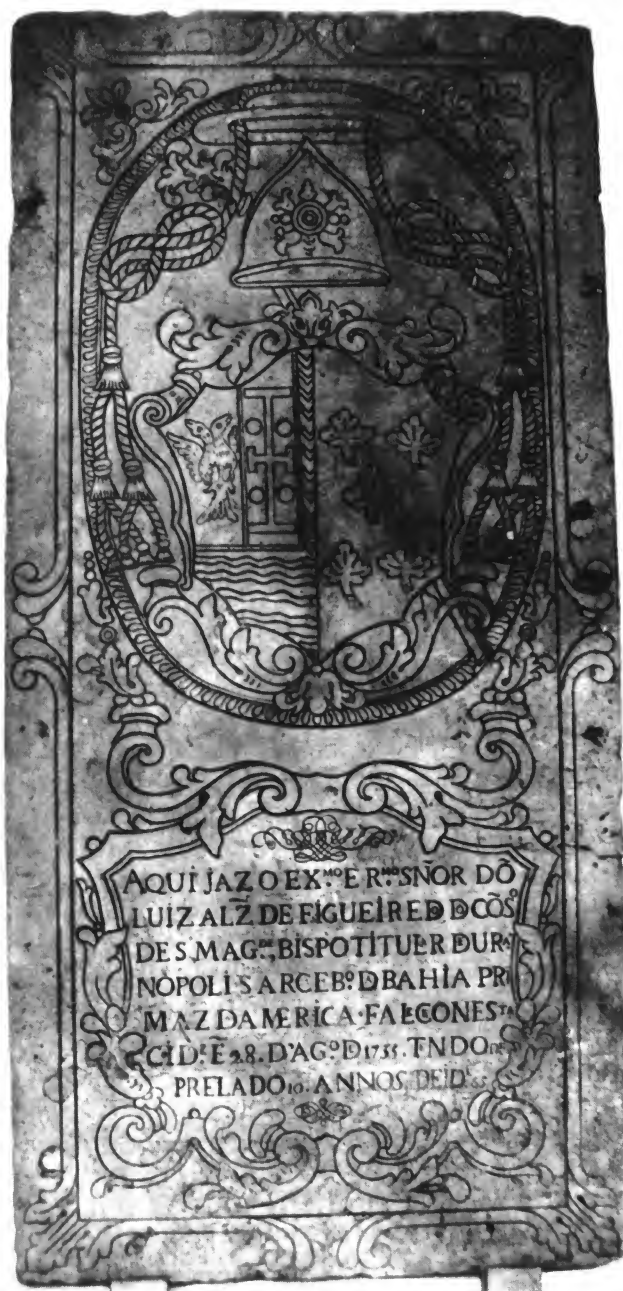 AQUI JAZ O EX.MO E R.MO SÑOR DÕ
LUIZ ALZ̃. DE FIGUEIREDO D CÕS.O
DE S. MAG.DE, BISPO TITULR D URA
NOPOLIS ARCEB.O D BAHIA PRI
MAZ D AMERICA. FALECCO NESTA
CID.E Ẽ 28. D'AG.O D 1735. TNDO DE
PRELADO 10. ANNOS, DE ID.E 65